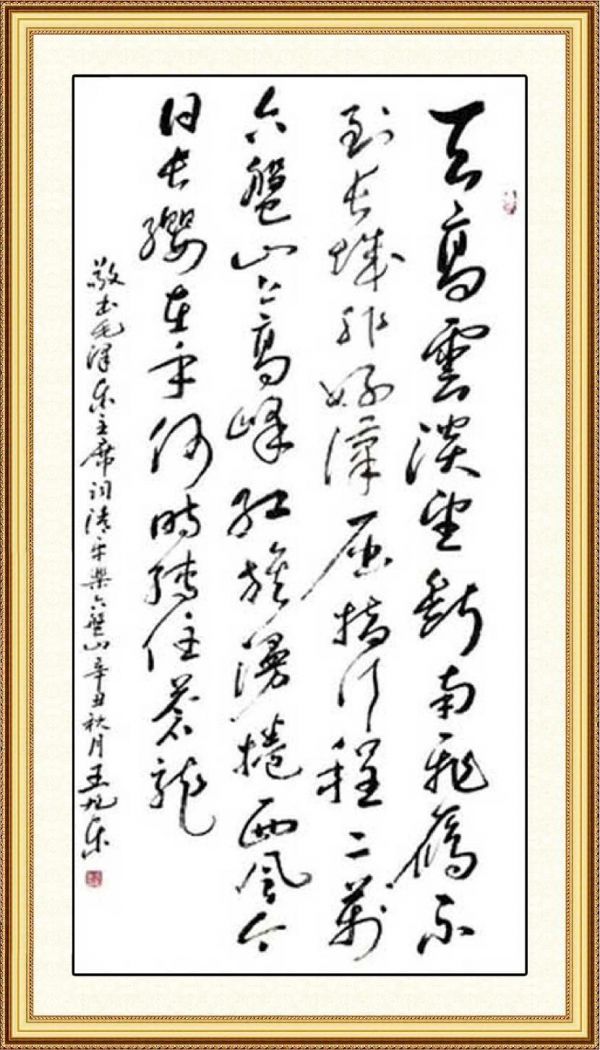 天高雲淡望斷南飛鴈不
到長城非好漢屈指行程二萬
六盤山上高峰紅旗漫捲西風今
日長纓在手何時縛住蒼龍
敬书毛澤东主席词清平樂六盤山辛丑秋月王旭东